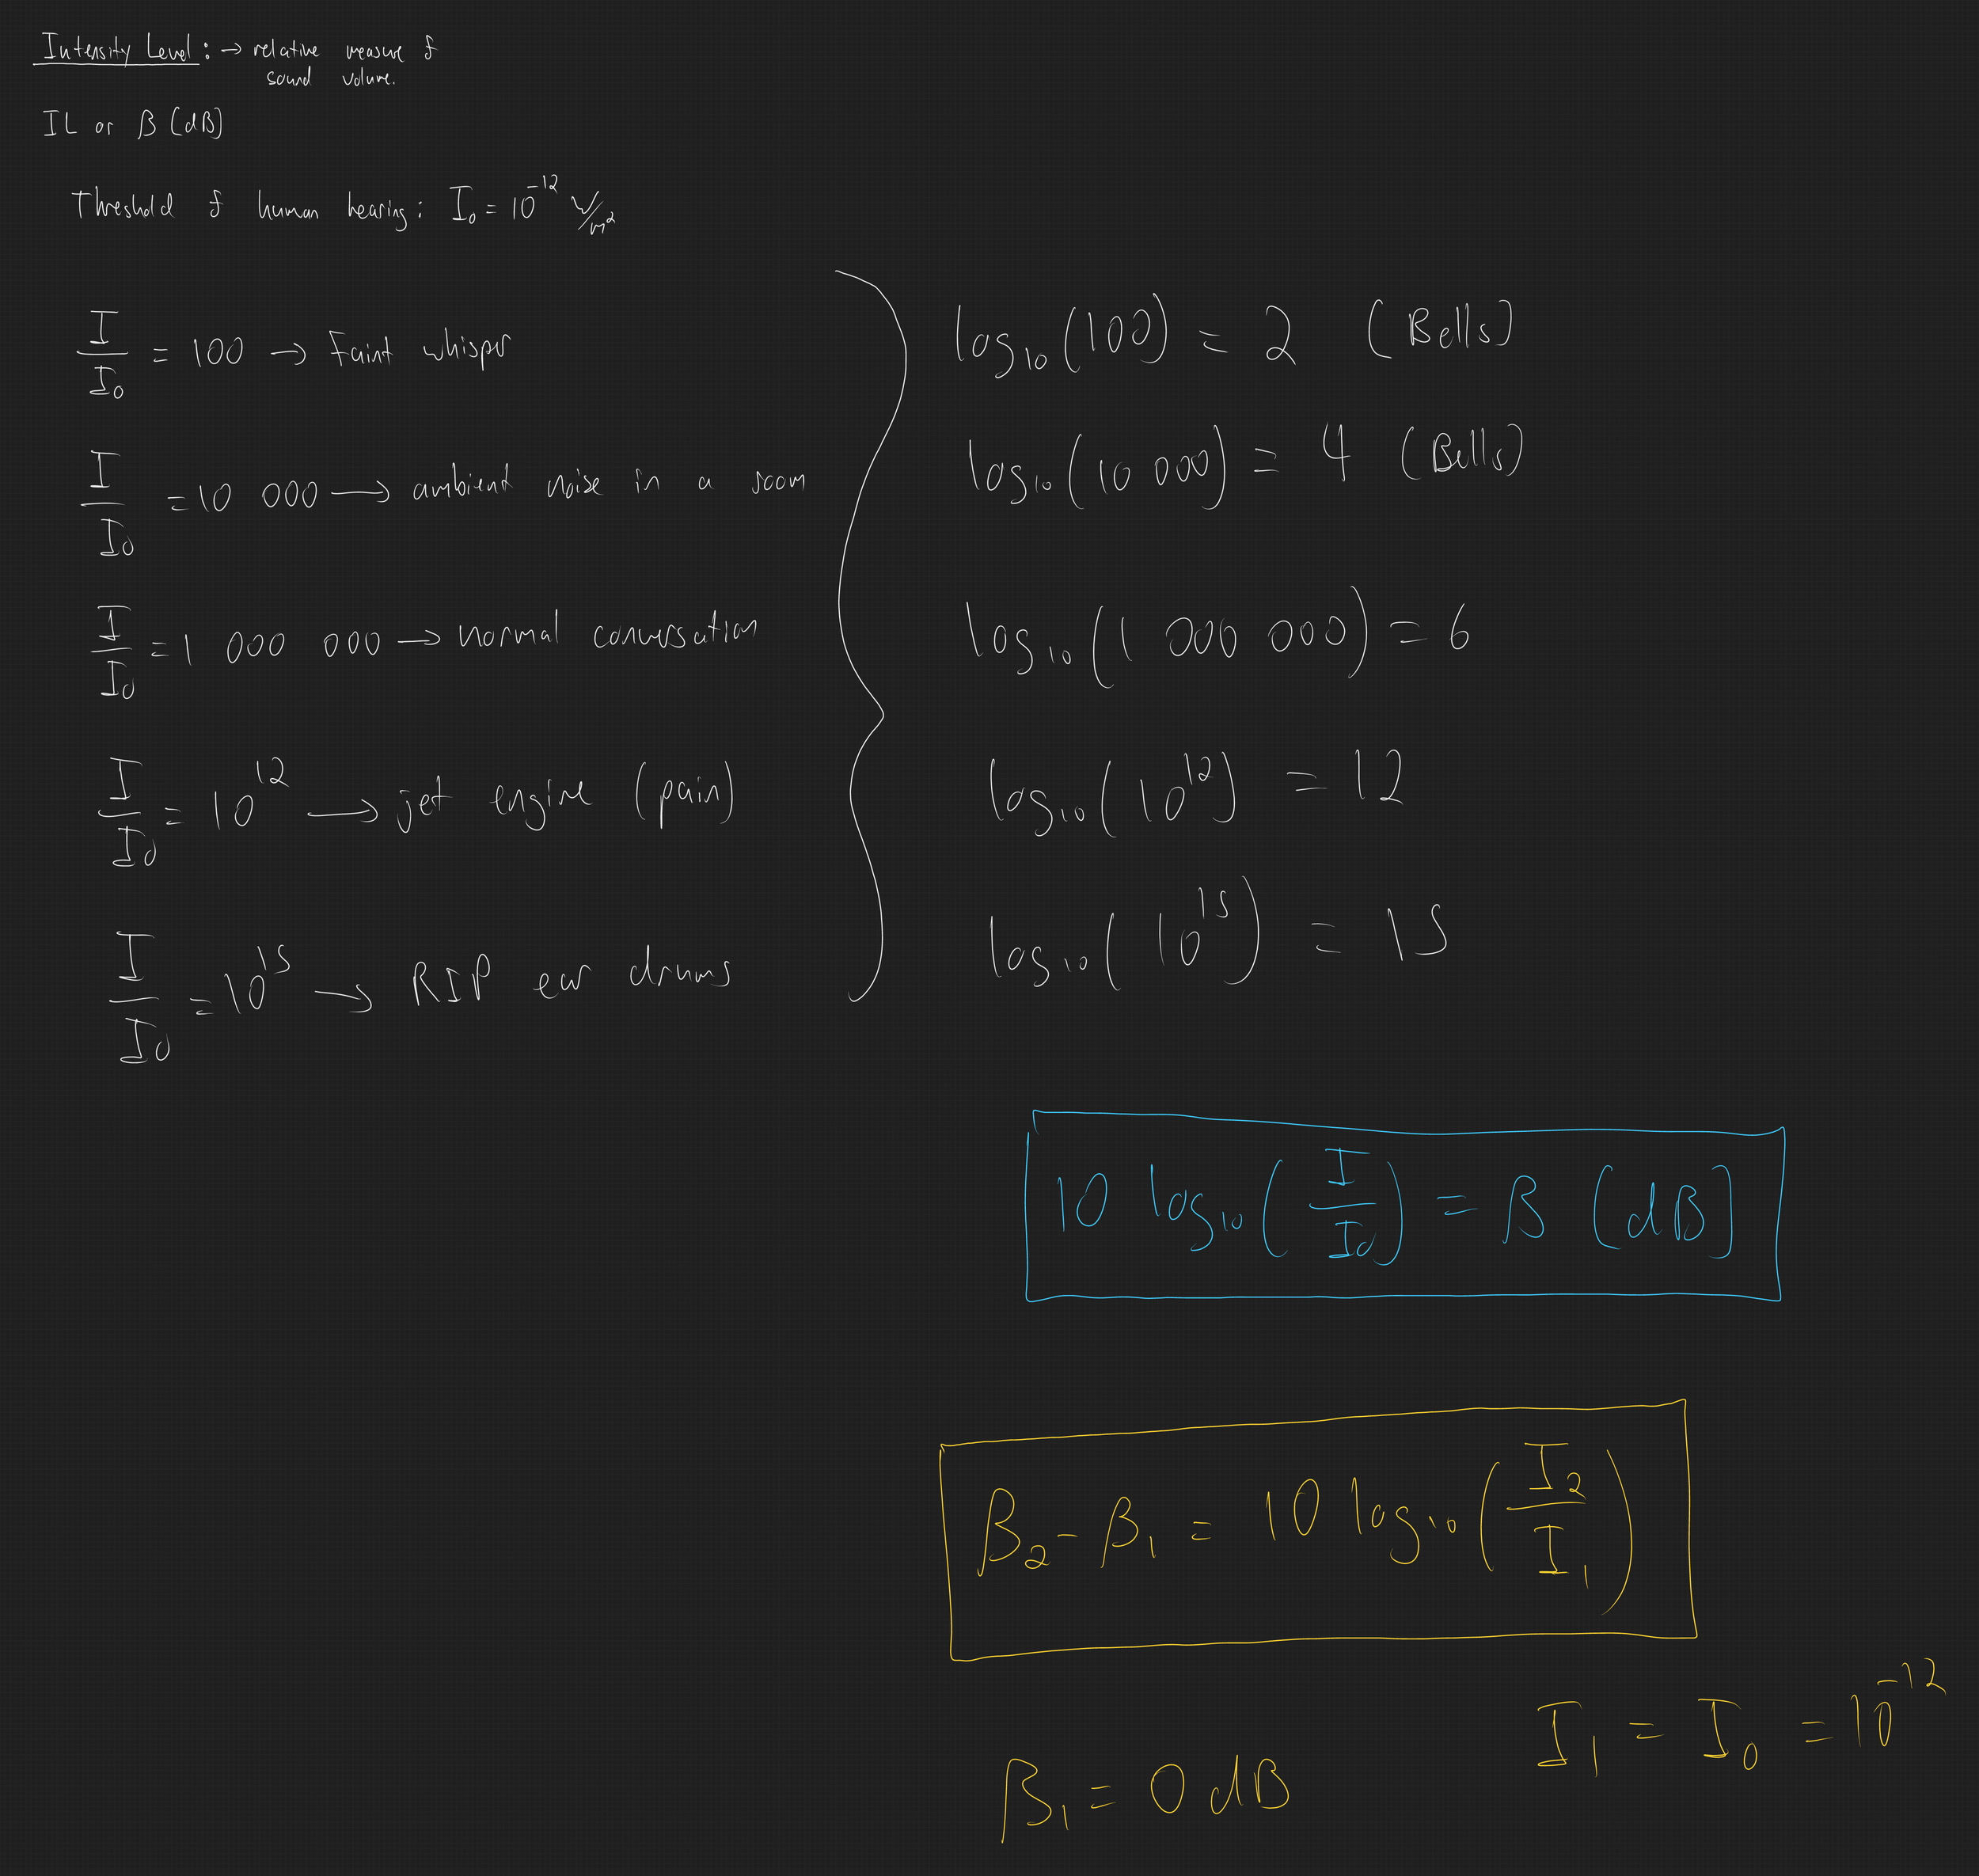 Intensity Level: → relative measure of
sound volume.
IL or β (dB)
Threshold of human hearing: I₀ = 10⁻¹² W/m²
I/I₀ = 100 → Faint whisper
I/I₀ = 10 000 → ambient noise in a room
I/I₀ = 1 000 000 → normal conversation
I/I₀ = 10¹² → jet engine (pain)
I/I₀ = 10¹⁵ → RIP ear drums
log₁₀(100) = 2 (Bells)
log₁₀(10 000) = 4 (Bells)
log₁₀(1 000 000) = 6
log₁₀(10¹²) = 12
log₁₀(10¹⁵) = 15
10 log₁₀(I/I₀) = β (dB)
β₂ - β₁ = 10 log₁₀(I₂/I₁)
I₁ = I₀ = 10⁻¹²
β₁ = 0 dB